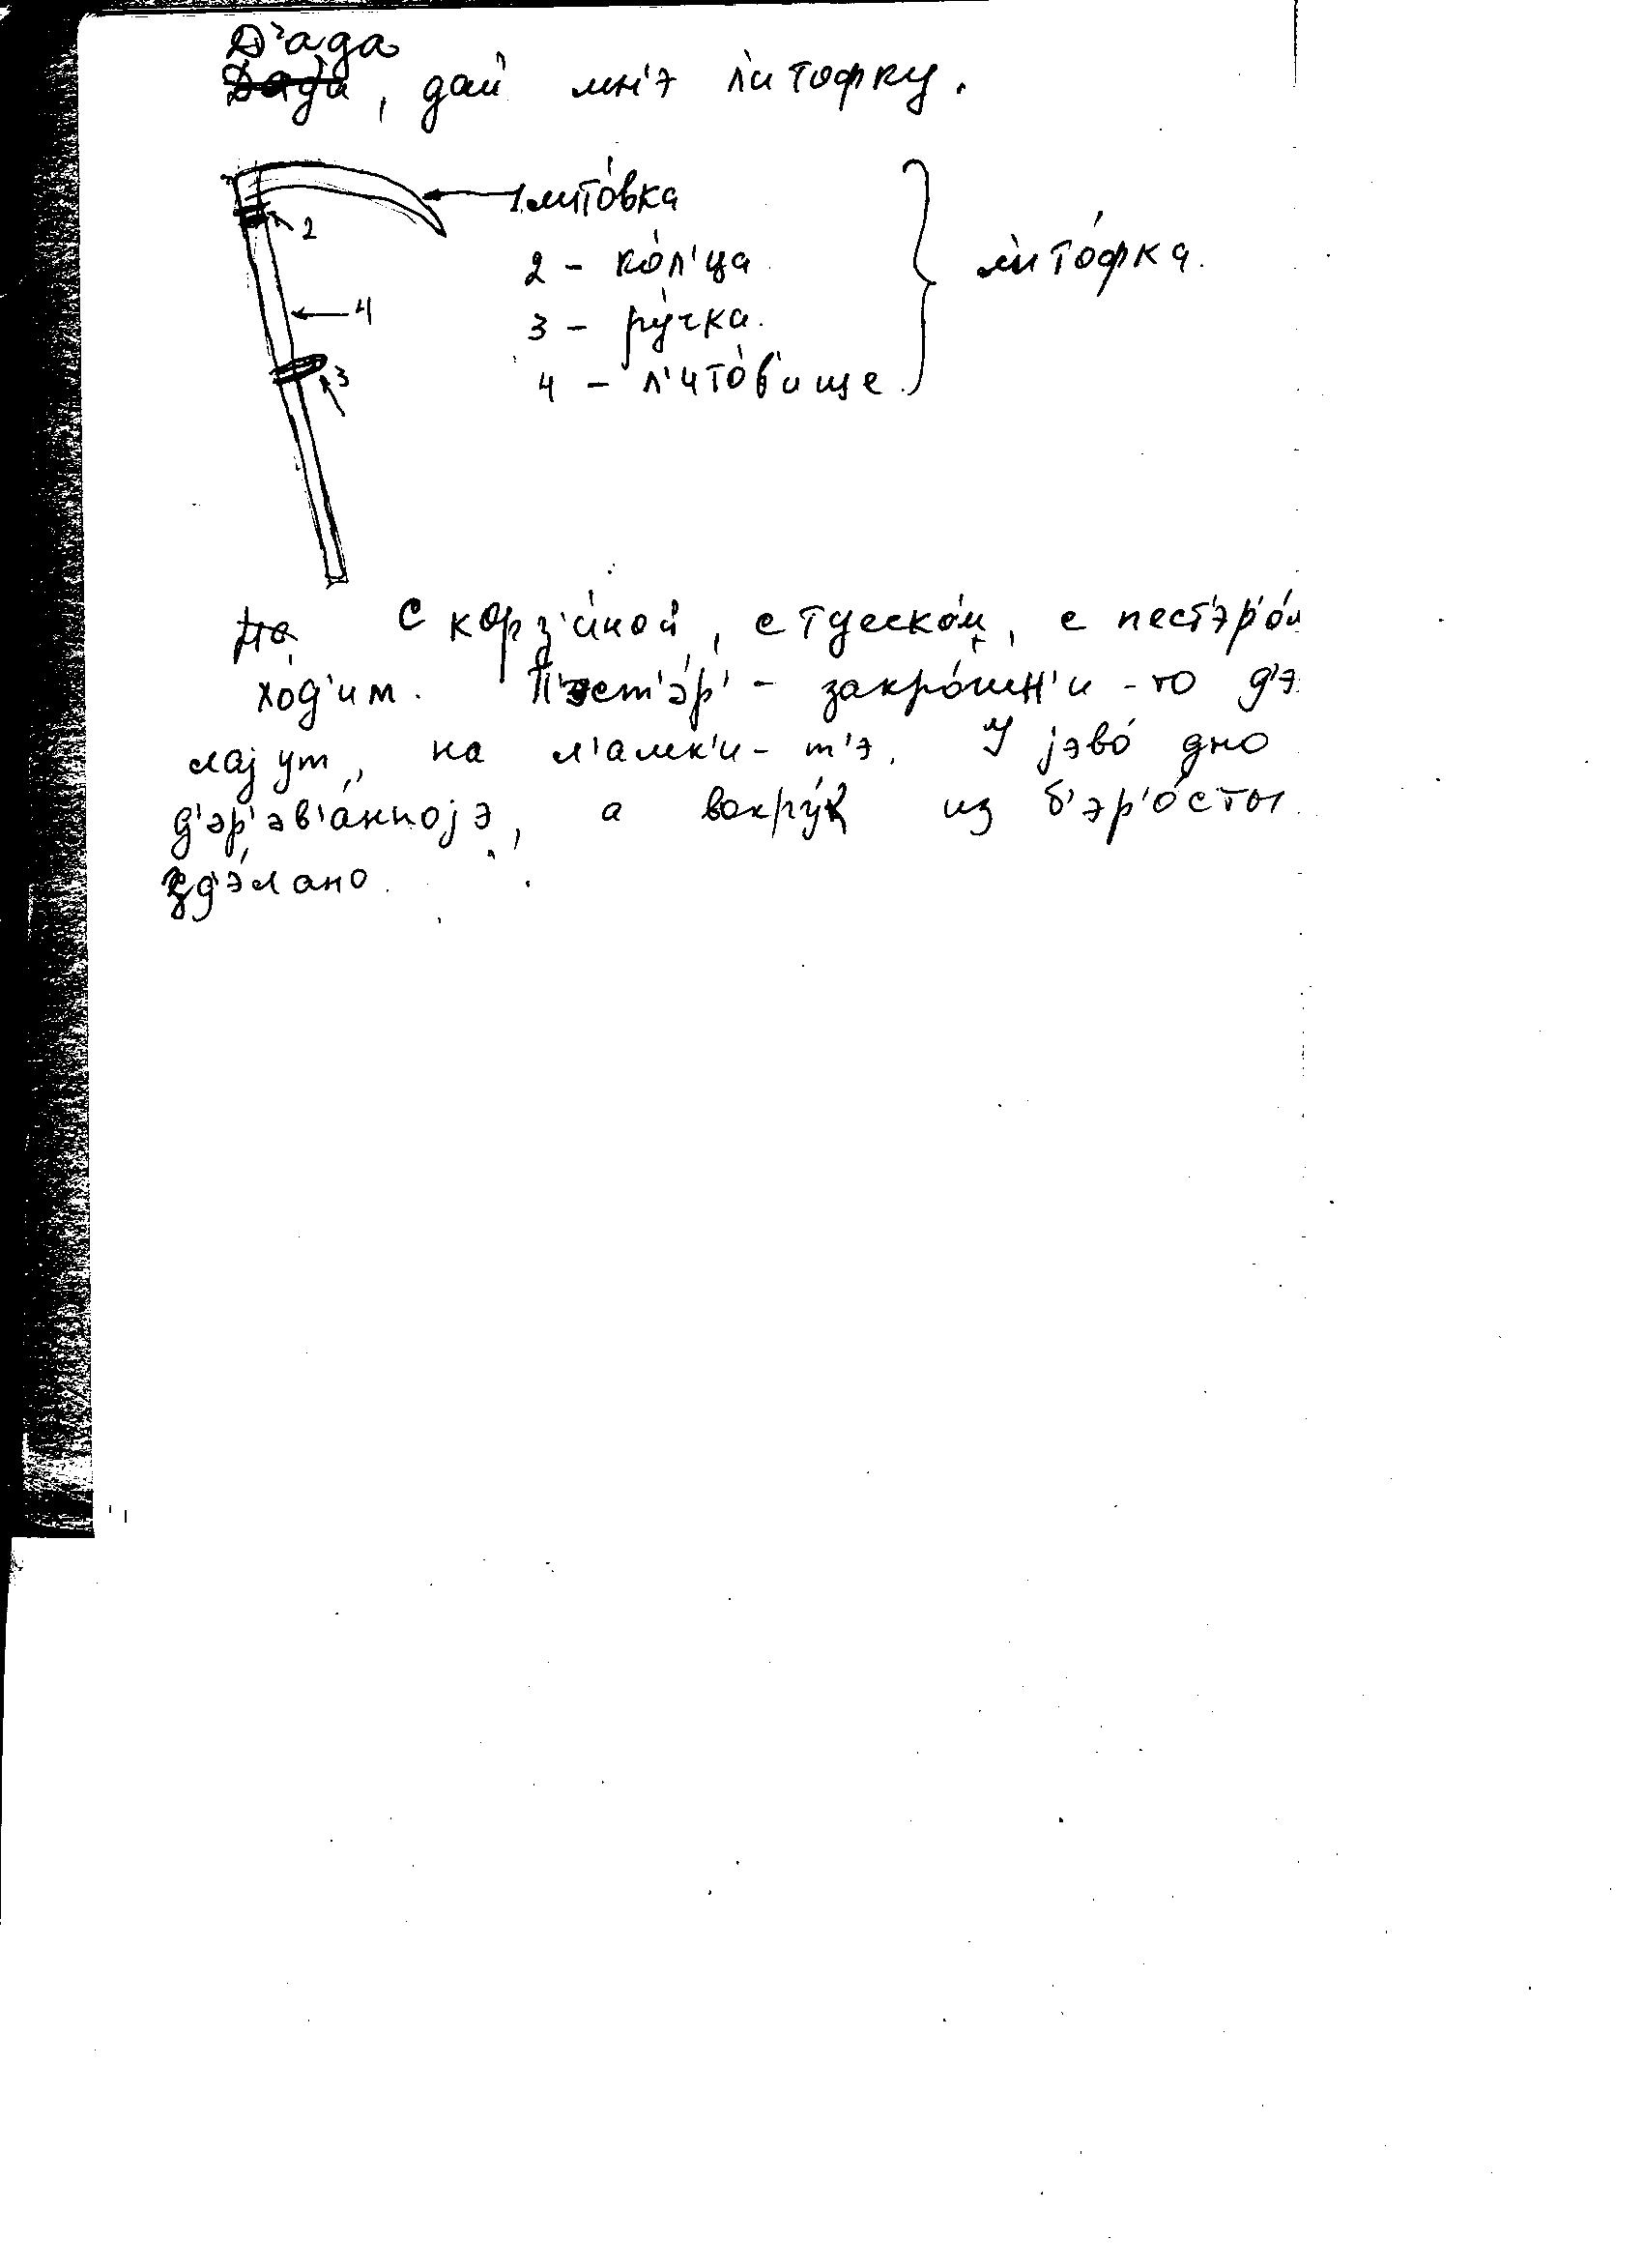 Д'ада
Дада, дай мн'э л'итофку.
1 лито́вка
2
2 - ко́л'ца
л'ито́фка.
4
3 - ру́чка.
3
4 - л'ито́в'ище.
С корз'и́ной, с туеско́м, с пест'эр'о́м
хо́д'им. П'эст'э́р' - закро́шн'и-то д'э́
лајут, на л'а́мк'и-т'э. У јэво́ дно
д'эр'эв'а́нноjэ, а вокру́к из б'эр'о́сты
зд'э́лано.